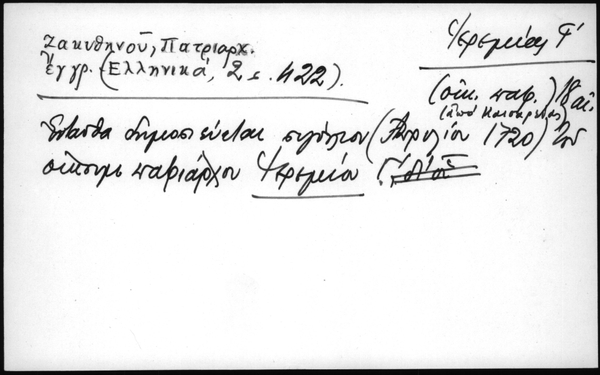 Ζακυθηνοῦ, Πατριαρχ.
ἔγγρ. (Ἑλληνικά, 2 σ. 422).
Ἱερεμίας Γ΄
(οἰκ. πατρ.) 18 αἰ.
(ἀπὸ Καισαρείας)
Ἐνταῦθα δημοσιεύεται σιγίλλιον (Ἀπριλίου 1720) τοῦ
οἰκουμ. πατριάρχου Ἱερεμίου Γ΄